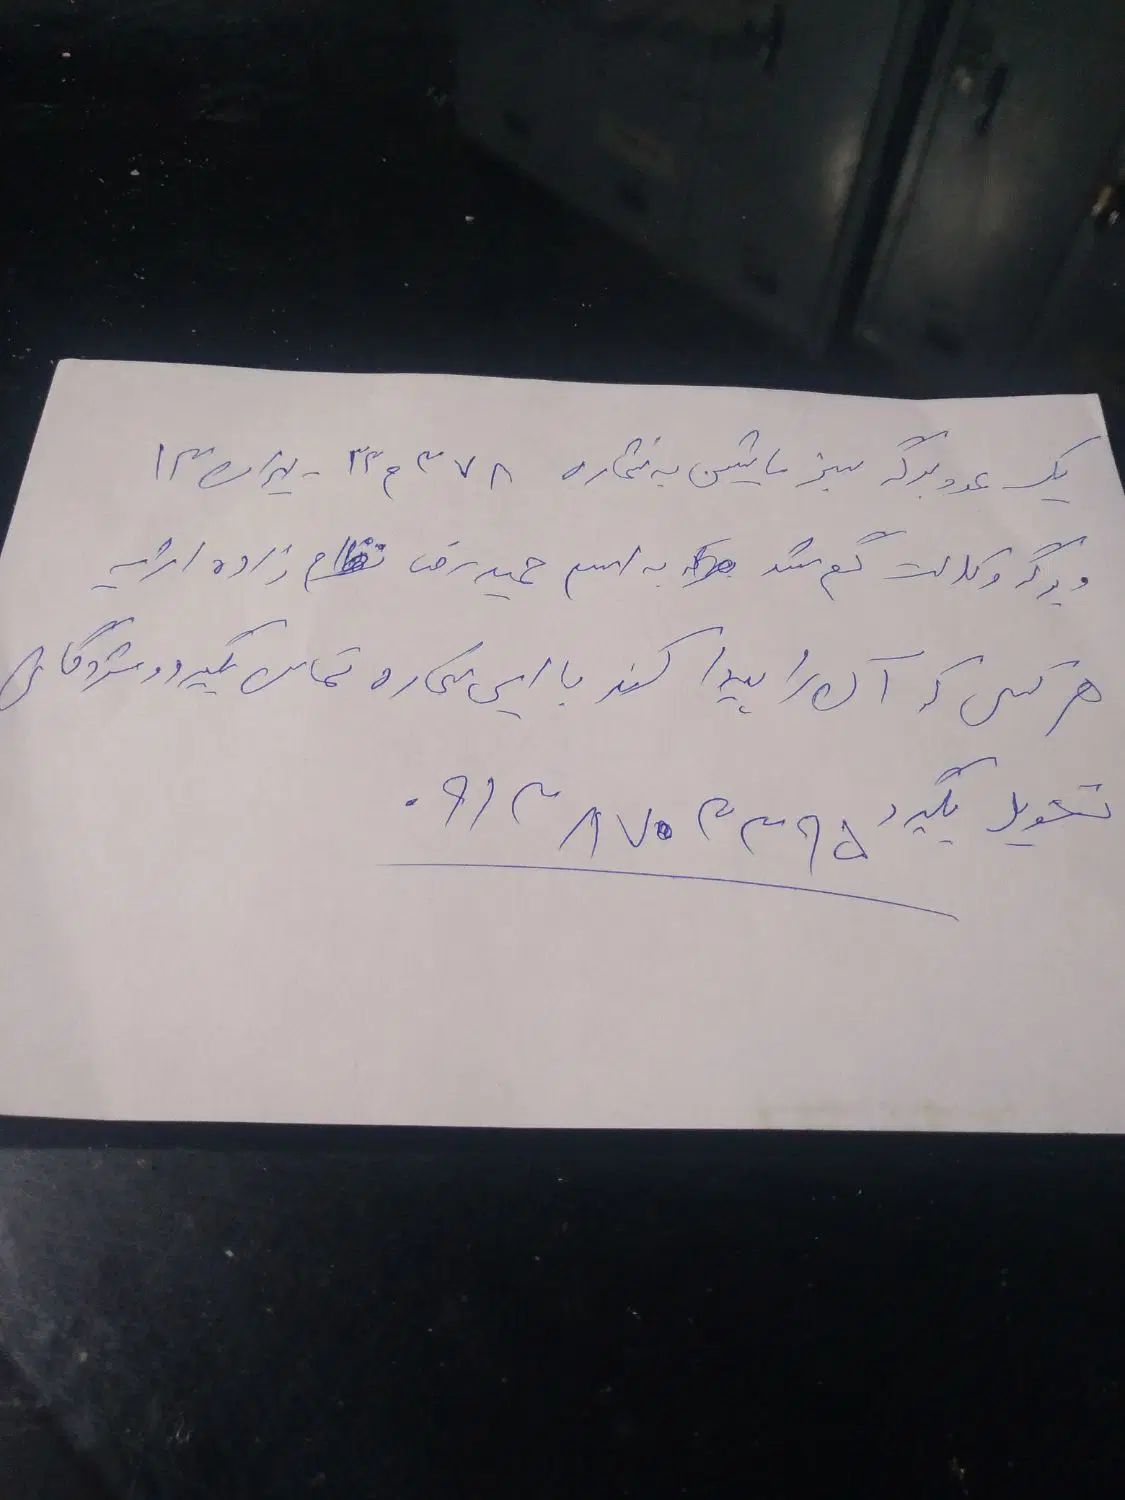 یک عدد برگه سبز ماشین به شماره ۳۷۸ م ۳۴ - ایران ۱۳
و برگه وکالت گم شد به اسم حمیدرضا نظام زاده اژیه
هر کس که آن را پیدا کند با این شماره تماس بگیرد و مژدگانی
تحویل بگیرد ۰۹۱۳۸۷۰۳۳۹۵